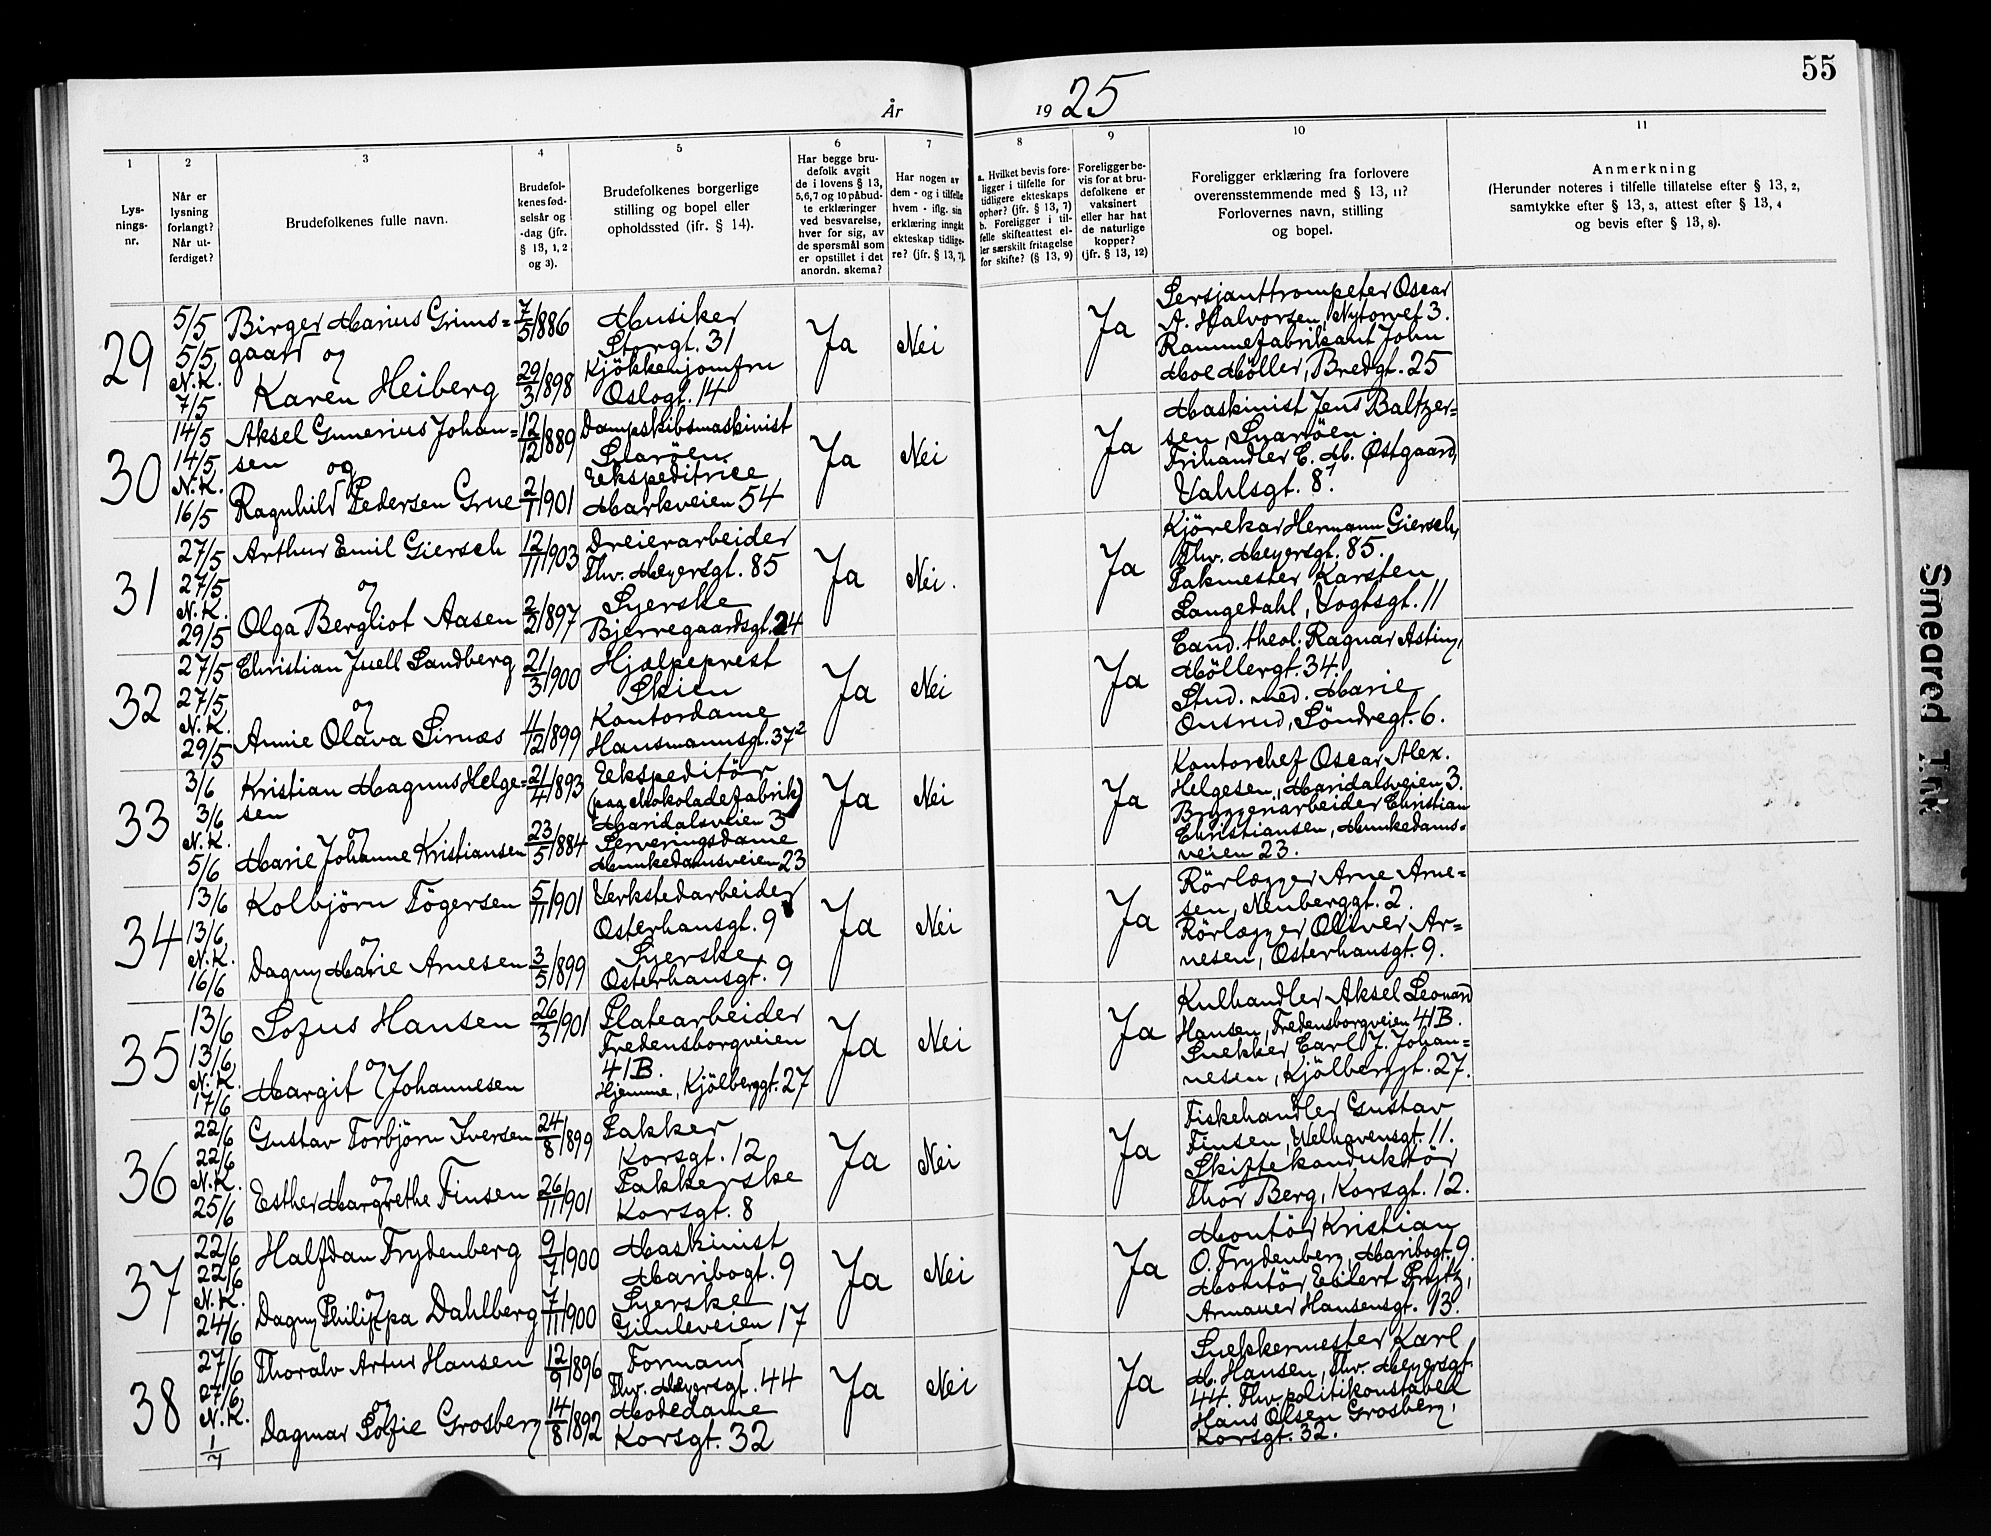 55
År 1925
1
2
3
4
5
6
7
8
9
10
11
Lys-
nings-
nr.
Når er
lysning
forlangt?
Når ut-
ferdiget?
Brudefolkenes fulle navn.
Brudefol-
kenes fød-
selsår og
-dag (jfr.
§ 13, 1, 2
og 3).
Brudefolkenes borgerlige
stilling og bopel eller
opholdssted (jfr. § 14).
Har begge bru-
defolk avgit
de i lovens § 13,
5,6,7 og 10 påbud-
te erklæringer
ved besvarelse,
hver for sig, av
de spørsmål som
er opstillet i det
anordn. skema?
Har nogen av
dem - og i tilfelle
hvem - iflg. sin
erklæring inngått
ekteskap tidlige-
re? (jfr. § 13, 7).
a. Hvilket bevis fore-
ligger i tilfelle for
tidligere ekteskaps
ophør? (jfr. § 13, 7)
b. Foreligger i til-
felle skifteattest el-
ler særskilt fritagelse
for skifte? (§ 13, 9)
Foreligger be-
vis for at bru-
defolkene er
vaksinert
eller har hat
de naturlige
kopper?
(jfr. § 13, 12)
Foreligger erklæring fra forlovere
overensstemmende med § 13, 11?
Forlovernes navn, stilling
og bopel.
Anmerkning
(Herunder noteres i tilfelle tillatelse efter § 13, 2,
samtykke efter § 13, 3, attest efter § 13, 4
og bevis efter § 13, 8).
29
5/5
5/5
N.K.
7/5
Birger Marius Grims=
gaard og
Karen Heiberg
7/5 1886
29/3 1898
Musiker
Storgt. 31
Kjökkenjomfru
Oslogt. 14
Ja
Nei
Ja
Sersjanttrompeter Oscar
A. Halvorsen, Nytorvet 3.
Rammefabrikant John
Moe Möller, Bredgt. 25
30
14/5
14/5
N.K.
16/5
Aksel Gunerius Johan=
sen og
Ragnhild Pedersen Grue
12/12 1889
2/1 1901
Dampskibsmaskinist
Snaröen
Ekspeditrice
Markveien 54
Ja
Nei
Ja
Maskinist Jens Baltzer=
sen, Snaröen.
Frihandler E. M. Østgaard,
Vahlsgt. 8.
31
27/5
27/5
N.K.
29/5
Arthur Emil Giersch
og
Olga Bergliot Aasen
12/11 1903
2/2 1897
Dreierarbeider
Thv. Meyersgt. 85
Syerske
Bjerregaardsgt. 24
Ja
Nei.
Ja
Kjörekar Hermann Giersch,
Thv. Meyersgt. 85.
Pakmester Karsten
Langedahl, Vogtsgt. 11
32
27/5
27/5
N.K.
29/5
Christian Juell Sandberg
og
Annie Olava Sirnæs
21/3 1900
4/12 1899
Hjælpeprest
Skien
Kontordame
Hausmannsgt. 37²
Ja
Nei
Ja
Cand. theol. Ragnar Asting,
Möllergt. 34.
Stud. med. Marie
Onsrud, Söndregt. 6.
33
3/6
3/6
N.K.
5/6
Kristian Magnus Helge=
sen
og
Marie Johanne Kristiansen
21/4 1893
23/5 1884
Ekspeditör
(paa chokoladefabrik)
Maridalsveien 3
Serveringsdame
Munkedamsveien 23
Ja
Nei
Ja
Kontorchef Oscar Alex.
Helgesen, Maridalsveien 3.
Bryggeriarbeider Christian
Christiansen, Munkedams=
veien 23.
34
13/6
13/6
N.K.
16/6
Kolbjörn Tögersen
og
Dagny Marie Arnesen
5/11 1901
3/5 1899
Verkstedarbeider
Osterhausgt. 9
Syerske
Osterhausgt. 9
Ja
Nei
Ja
Rörlægger Arne Arne=
sen, Neuberggt. 2.
Rörlægger Oliver Ar=
nesen, Osterhausgt. 9.
35
13/6
13/6
N.K.
17/6
Sofus Hansen
og
Margit Johannesen
26/3 1901
Platearbeider
Fredensborgveien
41B.
Hjemme, Kjölberggt. 27
Ja
Nei
Ja
Kulhandler Aksel Leonard
Hansen, Fredensborgveien 41B.
Snekker Carl J. Johan=
nesen, Kjölberggt. 27.
36
22/6
22/6
N.K.
25/6
Gustav Torbjörn Iversen
og
Esther Margrethe Finsen
24/8 1899
26/11 1901
Pakker
Korsgt. 12
Pakkerske
Korsgt. 8
Ja
Nei
Ja
Fiskehandler Gustav
Finsen, Welhavensgt. 11.
Skiftekonduktör
Thor Berg, Korsgt. 12.
37
22/6
22/6
N.K.
24/6
Halfdan Frydenberg
og
Dagny Philippa Dahlberg
9/7 1900
7/11 1900
Maskinist
Maribogt. 9
Syerske
Gimleveien 17
Ja
Nei
Ja
Montör Kristian
O. Frydenberg, Maribogt. 9.
Montör Eilert Prytz,
Armauer Hansensgt. 13.
38
27/6
27/6
N.K.
1/7
Thoralv Artur Hansen
og
Dagmar Sofie Grosberg
12/9 1896
14/8 1892
Formand
Thv. Meyersgt. 44
Motedame
Korsgt. 32
Ja
Nei
Ja
Snekkermester Karl
M. Hansen, Thv. Meyersgt.
44. Fhv. politikonstabel
Hans Olsen Grosberg,
Korsgt. 32.
Smeared Ink